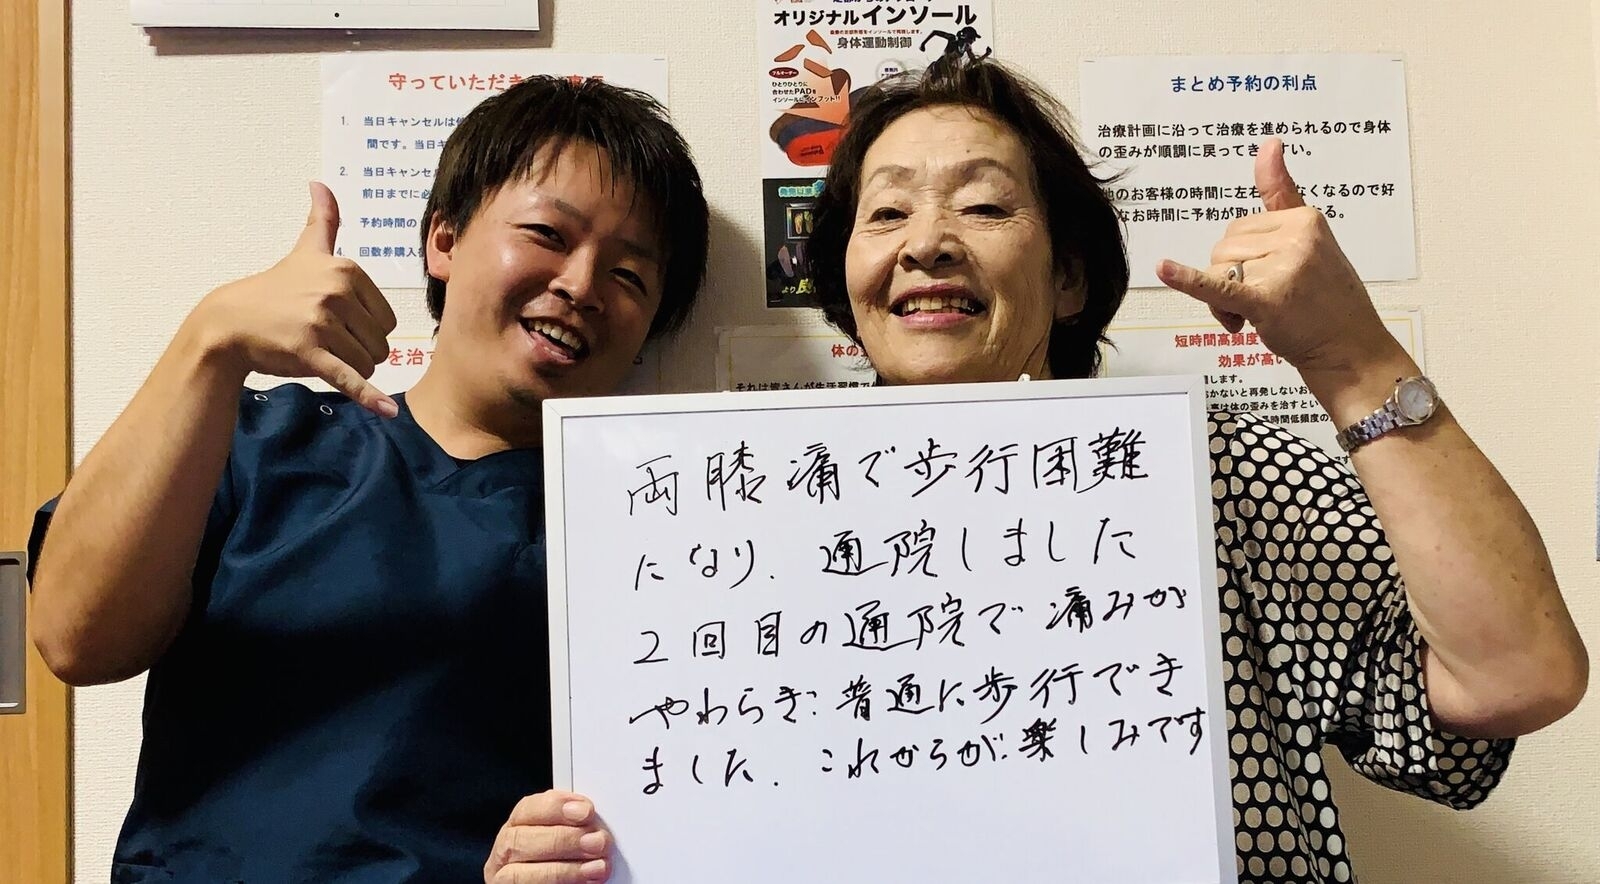 オリジナルインソール
身体運動制御
フルオーダー
ひとりひとりに
合わせたPADを
インソールにインプット!!
守っていただき
1. 当日キャンセルは
間です。当日キ
2. 当日キャンセル
前日までに必
予約時間の
4. 回数券購入
を治す
まとめ予約の利点
治療計画に沿って治療を進められるので身体
の歪みが順調に戻ってき すい。
他のお客様の時間に左右 なくなるので好
なお時間に予約が取り なる。
体の
それは皆さんが生活習慣で
短時間高頻度
効果が高い
します。
おかないと再発しないお
は体の歪みを治すとい
時間低頻度の
両膝痛で歩行困難
になり、通院しました
2回目の通院で痛みが
やわらぎ、普通に歩行でき
ました。これからが楽しみです